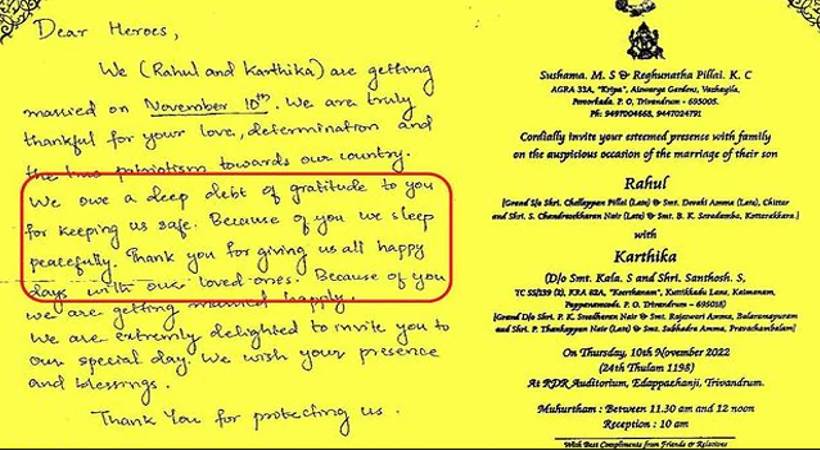 Dear Heroes,
We (Rahul and Karthika) are getting
married on November 10th. We are truly
thankful for your love, determination and
the true patriotism towards our country.
We owe a deep debt of gratitude to you
for keeping us safe. Because of you we sleep
peacefully. Thank you for giving us all happy
days with our loved ones. Because of you
we are getting married happily.
We are extremely delighted to invite you to
our special day. We wish your presence
and blessings.
Thank You for protecting us.
Sushama. M. S & Reghunatha Pillai. K. C
AGRA 33A, "Kripa", Aiswarya Gardens, Vazhayila,
Peroorkada. P. O, Trivandrum - 695005.
Ph: 9497004668, 9447024791
Cordially invite your esteemed presence with family
on the auspicious occasion of the marriage of their son
Rahul
[Grand S/o Shri. Chellappan Pillai (Late) & Smt. Devaki Amma (Late), Chittar
and Shri. S. Chandrasekharan Nair (Late) & Smt. B. K. Saradamba, Kottarakkara.]
with
Karthika
(D/o Smt. Kala. S and Shri. Santhosh. S,
TC 55/139 (2), KRA 62A, "Keerthanam", Kuttikkadu Lane, Kaimanam,
Pappanamcode. P. O. Trivandrum - 695018)
[Grand D/o Shri. P. K. Sreedharan Nair & Smt. Rajeswari Amma, Balaramapuram
and Shri. P. Thankappan Nair (Late) & Smt. Subhadra Amma, Pravachambalam]
On Thursday, 10th November 2022
(24th Thulam 1198)
At RDR Auditorium, Edappazhanji, Trivandrum.
Muhurtham : Between 11.30 am and 12 noon
Reception : 10 am
With Best Compliments from Friends & Relatives